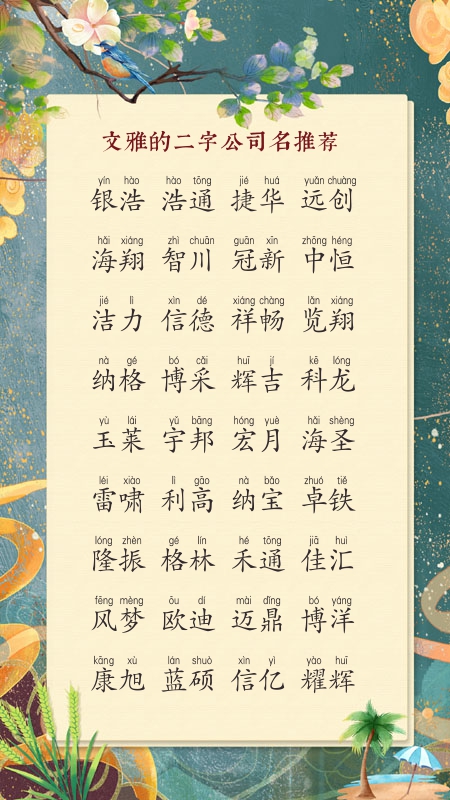 文雅的二字公司名推荐
yín hào hào tōng jié huá yuǎn chuàng
银浩 浩通 捷华 远创
hǎi xiáng zhì chuān guān xīn zhōng héng
海翔 智川 冠新 中恒
jié lì xìn dé xiáng chàng lǎn xiáng
洁力 信德 祥畅 览翔
nà gé bó cǎi huī jí kē lóng
纳格 博采 辉吉 科龙
yù lái yǔ bāng hóng yuè hǎi shèng
玉莱 宇邦 宏月 海圣
léi xiào lì gāo nà bǎo zhuó tiě
雷啸 利高 纳宝 卓铁
lóng zhèn gé lín hé tōng jiā huì
隆振 格林 禾通 佳汇
fēng mèng ōu dí mài dǐng bó yáng
风梦 欧迪 迈鼎 博洋
kāng xù lán shuò xìn yì yào huī
康旭 蓝硕 信亿 耀辉